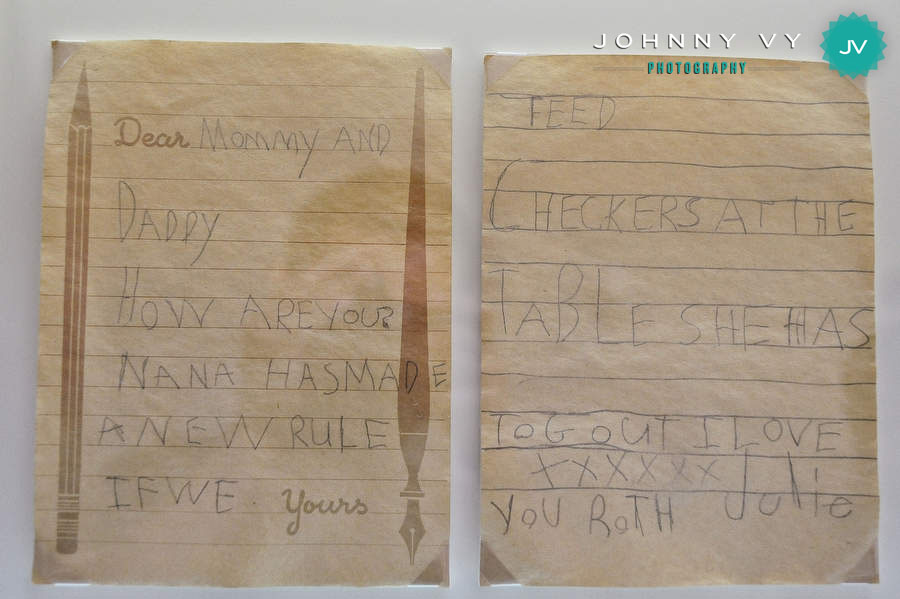 JOHNNY VY
PHOTOGRAPHY
JV
Dear Mommy AND
DADDY
HOW ARE YOU?
NANA HAS MADE
A NEW RULE
IF WE.
Yours
FEED
CHECKERS AT THE
TABLE SHE HAS
TO GO OUT I LOVE
XXXXXX Julie
YOU ROTH